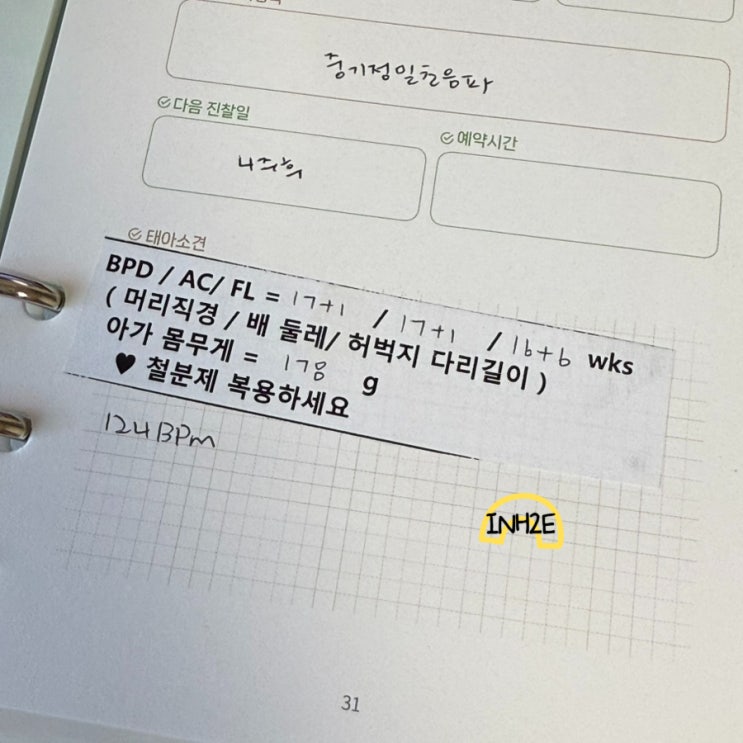 중기정밀초음파
다음 진찰일
예약시간
4주후
태아소견
BPD / AC/ FL = 17+1 / 17+1 / 16+6 wks
( 머리직경 / 배 둘레/ 허벅지 다리길이 )
아가 몸무게 = 178 g
♥ 철분제 복용하세요
124BPm
INH2E
31